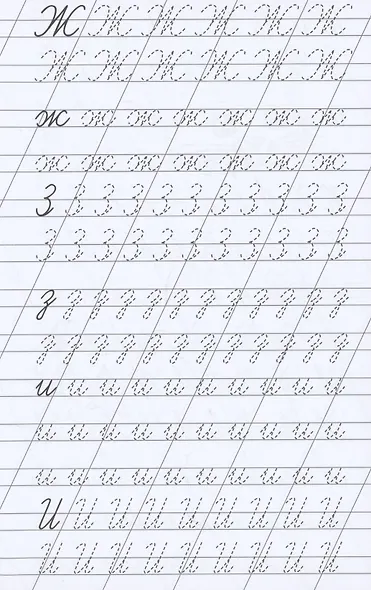 Ж Ж Ж Ж Ж Ж
Ж Ж Ж Ж Ж Ж
ж ж ж ж ж ж ж
ж ж ж ж ж ж ж
З З З З З З З З З З З
З З З З З З З З З З З
з з з з з з з з з з з з
з з з з з з з з з з з з
и и и и и и и и и и
и и и и и и и и и и
и и и и и и и и и и
И И И И И И И И И
И И И И И И И И И